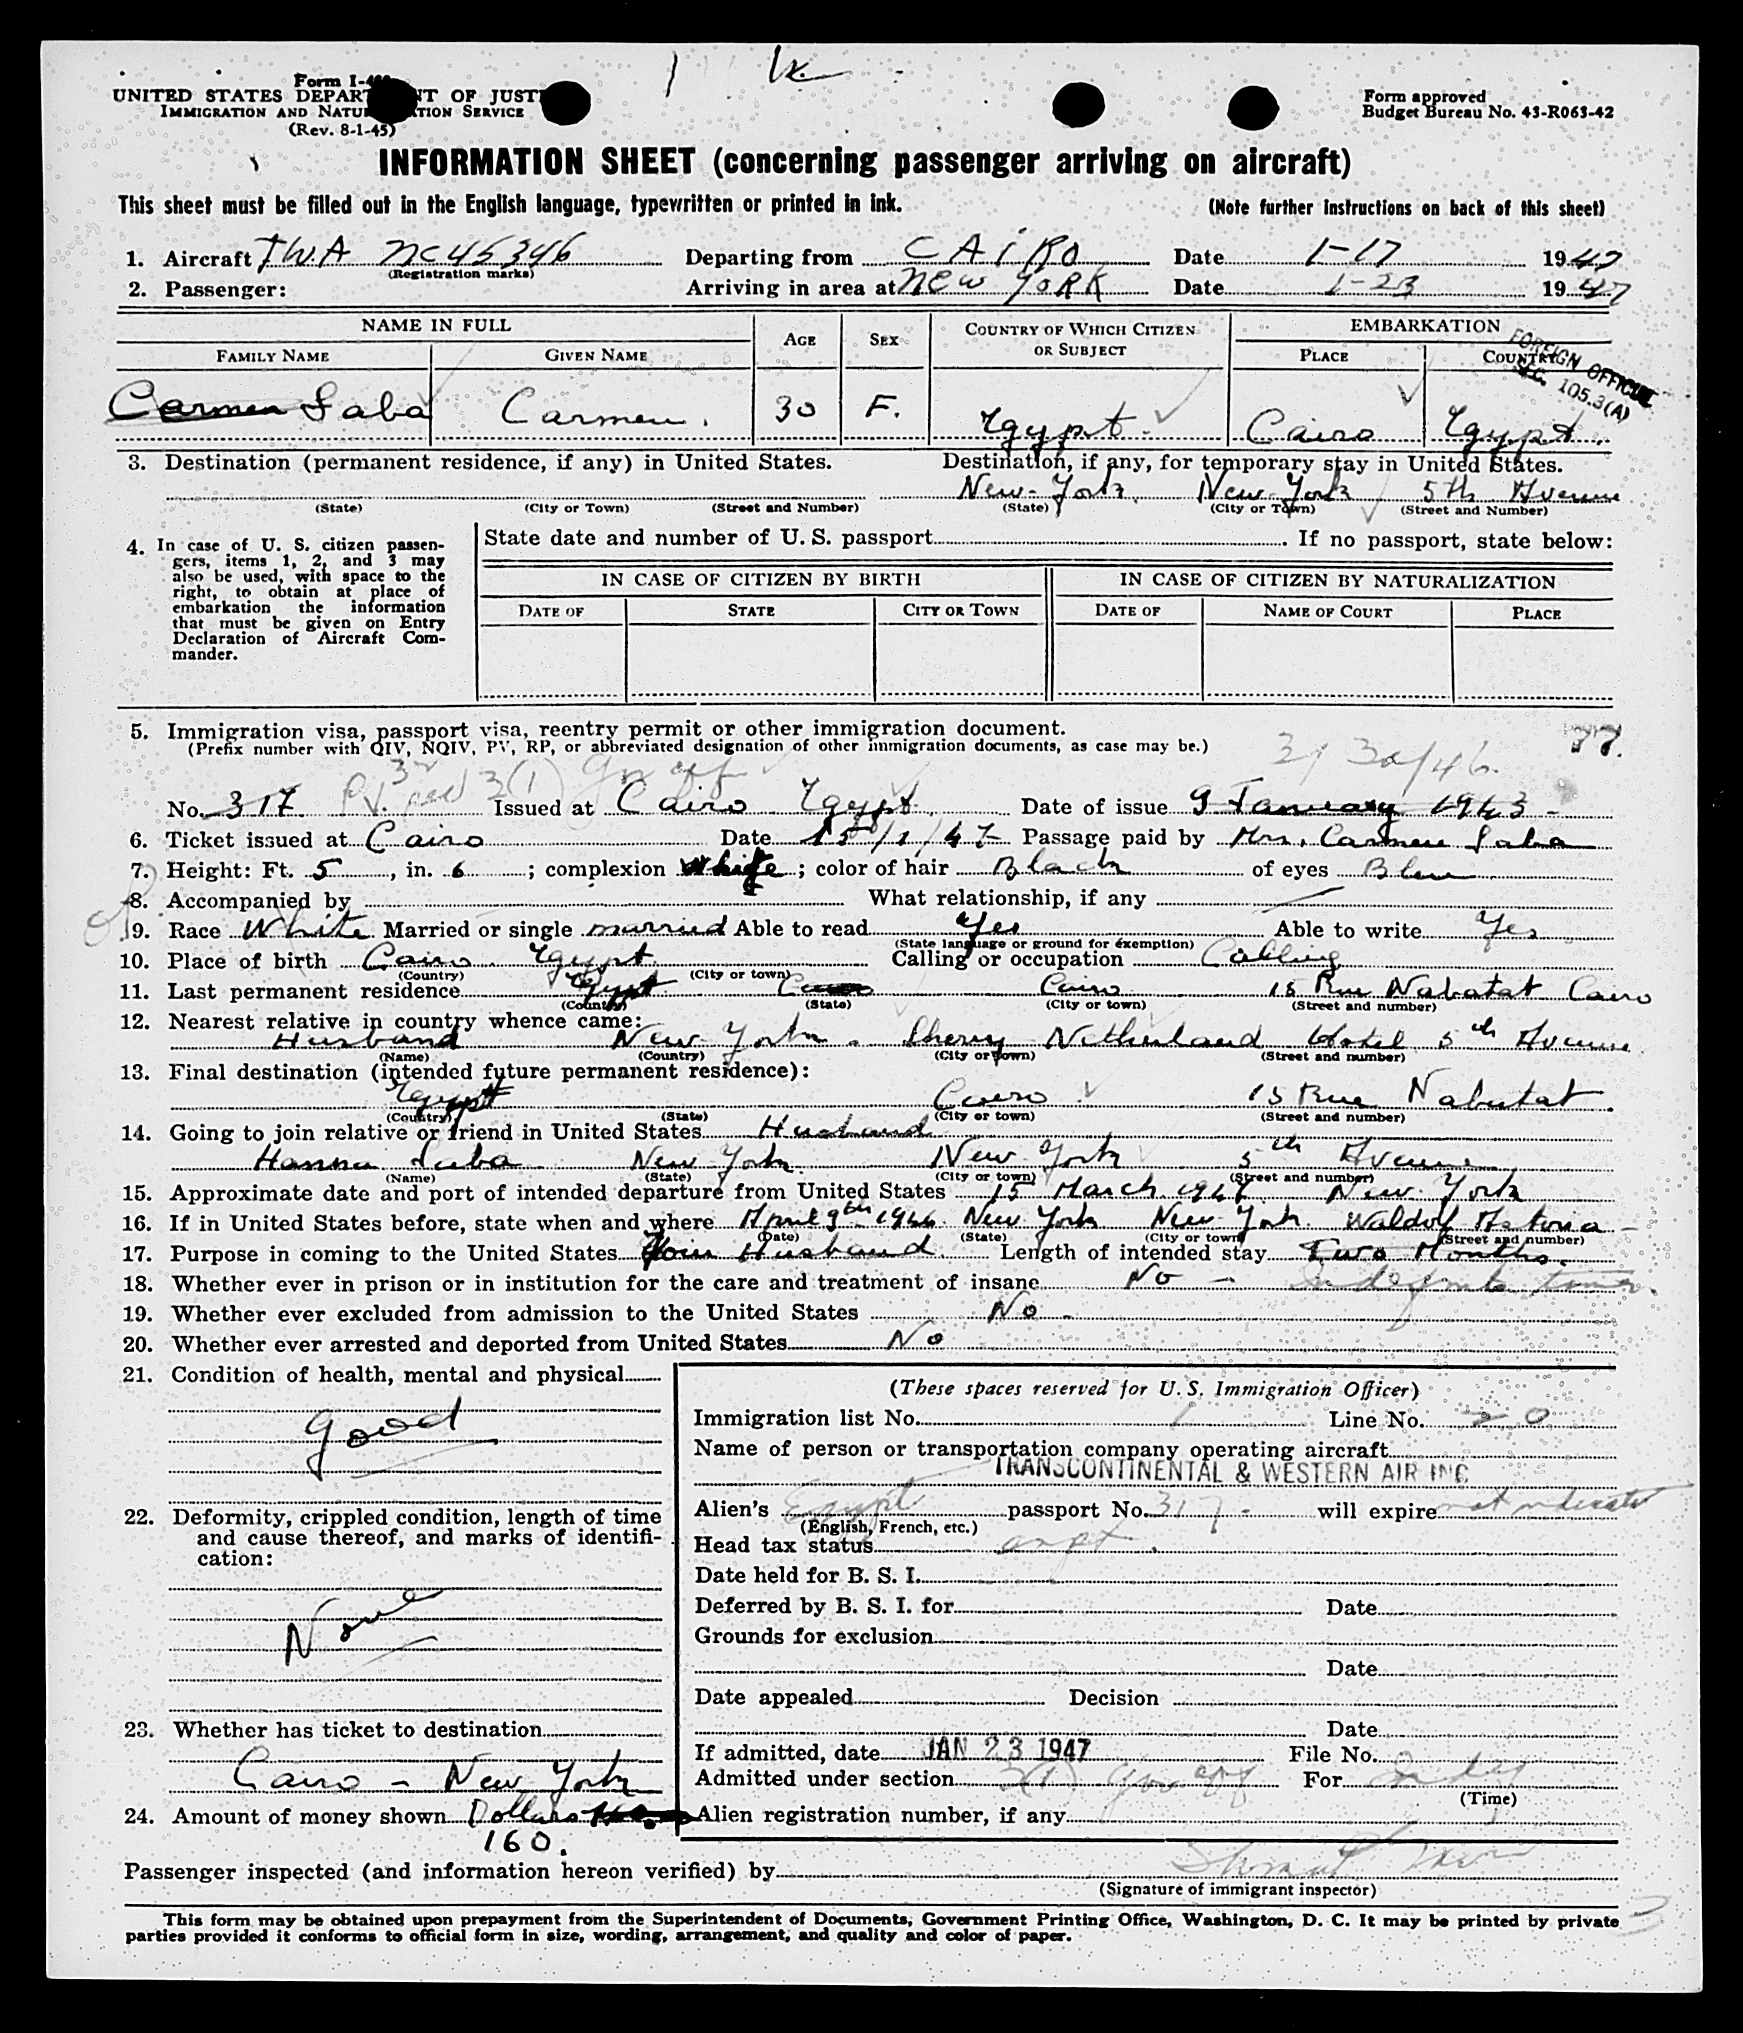 Form I-4
UNITED STATES DEPARTMENT OF JUSTICE
IMMIGRATION AND NATURALIZATION SERVICE
(Rev. 8-1-45)
Form approved
Budget Bureau No. 43-R063-42
INFORMATION SHEET (concerning passenger arriving on aircraft)
This sheet must be filled out in the English language, typewritten or printed in ink.
(Note further instructions on back of this sheet)
1. Aircraft TWA NC45346 Departing from CAIRO Date 1-17 1947
(Registration marks)
2. Passenger: Arriving in area at NEW YORK Date 1-23 1947
NAME IN FULL AGE SEX COUNTRY OF WHICH CITIZEN OR SUBJECT EMBARKATION
FAMILY NAME GIVEN NAME PLACE COUNTRY
FOREIGN OFFICIAL
SEC. 105.3(A)
Carmen Saba Carmen. 30 F. Egypt Cairo Egypt.
3. Destination (permanent residence, if any) in United States. Destination, if any, for temporary stay in United States.
New-York. New-York 5th Avenue
(State) (City or Town) (Street and Number) (State) (City or Town) (Street and Number)
4. In case of U. S. citizen passen-
gers, items 1, 2, and 3 may
also be used, with space to the
right, to obtain at place of
embarkation the information
that must be given on Entry
Declaration of Aircraft Com-
mander.
State date and number of U. S. passport. If no passport, state below:
IN CASE OF CITIZEN BY BIRTH IN CASE OF CITIZEN BY NATURALIZATION
DATE OF STATE CITY OR TOWN DATE OF NAME OF COURT PLACE
5. Immigration visa, passport visa, reentry permit or other immigration document.
(Prefix number with QIV, NQIV, PV, RP, or abbreviated designation of other immigration documents, as case may be.)
77.
3/30/46.
3(1) Gov off
No. 317 PV. Issued at Cairo Egypt. Date of issue 9 January 1943
6. Ticket issued at Cairo Date 15/1/47 Passage paid by Mrs. Carmen Saba
7. Height: Ft. 5, in. 6; complexion White; color of hair Black of eyes Blue
8. Accompanied by What relationship, if any
9. Race White Married or single married Able to read Yes Able to write Yes
(State language or ground for exemption)
10. Place of birth Cairo Egypt Calling or occupation Calling
(Country) (City or town)
11. Last permanent residence Egypt Cairo Cairo 15 Rue Nabatat Cairo
(Country) (State) (City or town) (Street and number)
12. Nearest relative in country whence came:
Husband New-York. Sherry Netherland Hotel 5th Avenue
(Name) (Country) (City or town) (Street and number)
13. Final destination (intended future permanent residence):
Egypt Cairo 15 Rue Nabatat.
(Country) (State) (City or town) (Street and number)
14. Going to join relative or friend in United States Husband
Hanna Saba New York New York 5th Avenue
(Name) (State) (City or town) (Street and number)
15. Approximate date and port of intended departure from United States 15 March 1947 New-York
16. If in United States before, state when and where April 9th 1946 New York New-York. Waldorf Astoria
(Date) (State) (City or town) (Street and number)
17. Purpose in coming to the United States Join Husband. Length of intended stay Two Months.
18. Whether ever in prison or in institution for the care and treatment of insane No - Indefinite time.
19. Whether ever excluded from admission to the United States No -
20. Whether ever arrested and deported from United States No
21. Condition of health, mental and physical
Good
22. Deformity, crippled condition, length of time
and cause thereof, and marks of identifi-
cation:
None
23. Whether has ticket to destination
Cairo - New York
24. Amount of money shown Dollars
160.
(These spaces reserved for U. S. Immigration Officer)
Immigration list No. 1 Line No. 20
Name of person or transportation company operating aircraft
TRANSCONTINENTAL & WESTERN AIR INC
Alien's Egypt passport No. 317 - will expire not indicated
(English, French, etc.)
Head tax status
Date held for B. S. I.
Deferred by B. S. I. for Date
Grounds for exclusion
Date
Date appealed Decision
Date
If admitted, date JAN 23 1947 File No.
Admitted under section 3(1) Gov off For Indef
(Time)
Alien registration number, if any
Passenger inspected (and information hereon verified) by
(Signature of immigrant inspector)
This form may be obtained upon prepayment from the Superintendent of Documents, Government Printing Office, Washington, D. C. It may be printed by private
parties provided it conforms to official form in size, wording, arrangement, and quality and color of paper.